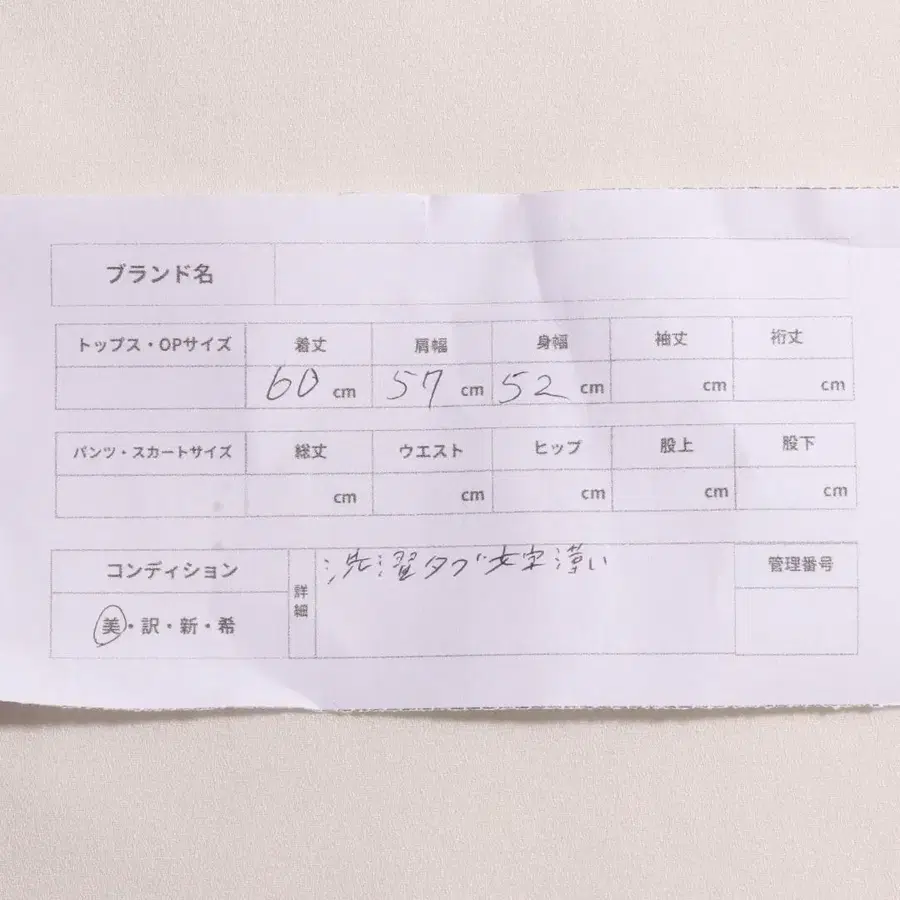 ブランド名
トップス・OPサイズ 着丈 肩幅 身幅 袖丈 裄丈
60 cm 57 cm 52 cm cm cm
パンツ・スカートサイズ 総丈 ウエスト ヒップ 股上 股下
cm cm cm cm cm
コンディション 詳細 洗濯タブ文字薄い 管理番号
美・訳・新・希